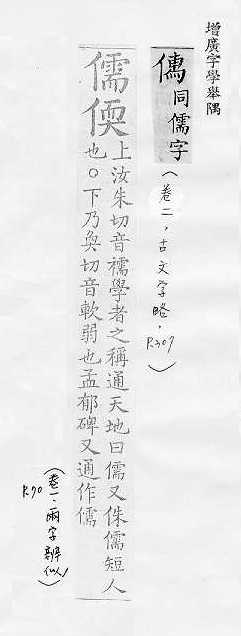 增廣字學舉隅
傿同儒字
(卷二,古文字略,P.307)
儒偄
上汝朱切音襦學者之稱通天地曰儒又侏儒短人
也○下乃奐切音軟弱也孟郁碑又通作儒
(卷一、兩字辨似)
P.70